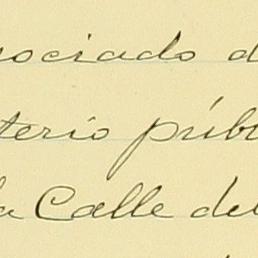 sociado d
terio públ
la Calle del